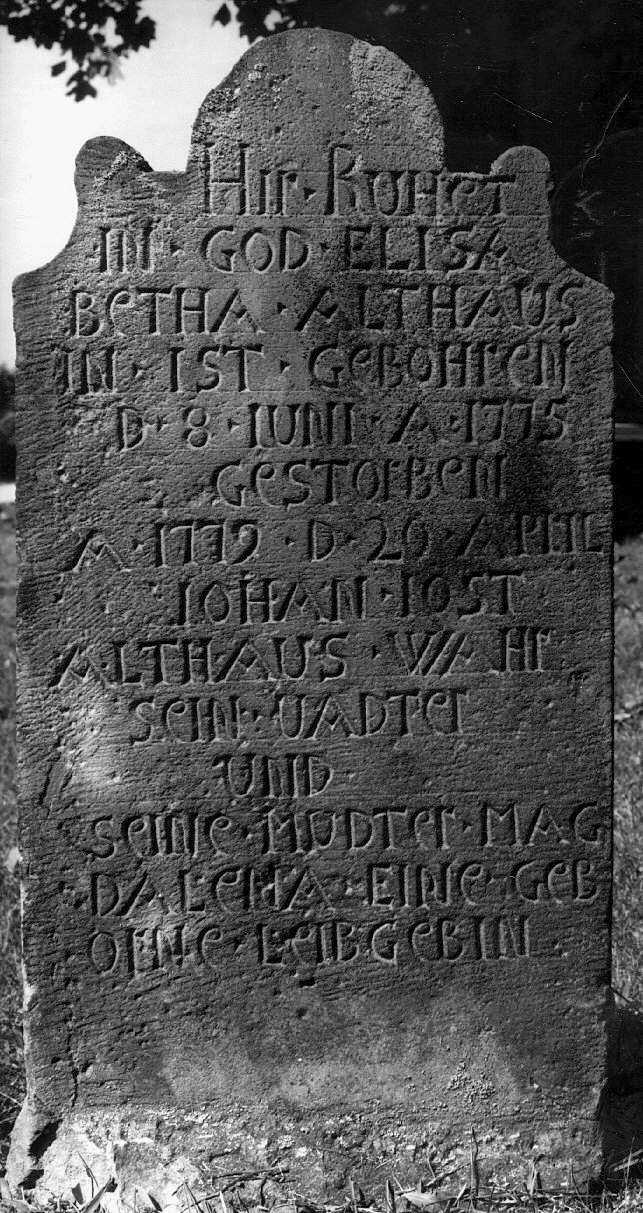 HIR · RUHET
IN · GOD · ELISA
BETHA · ALTHAUS
IN · IST · GEBOHREN
D · 8 · IUNI · A · 1775
GESTORBEN
A · 1779 · D · 26 · APRIL
IOHAN · IOST
ALTHAUS · WAHR
SEIN · VADTER
UND
SEINE · MUDTER · MAG
DALENA · EINE · GEB
ORNE · LEIBGEBIN